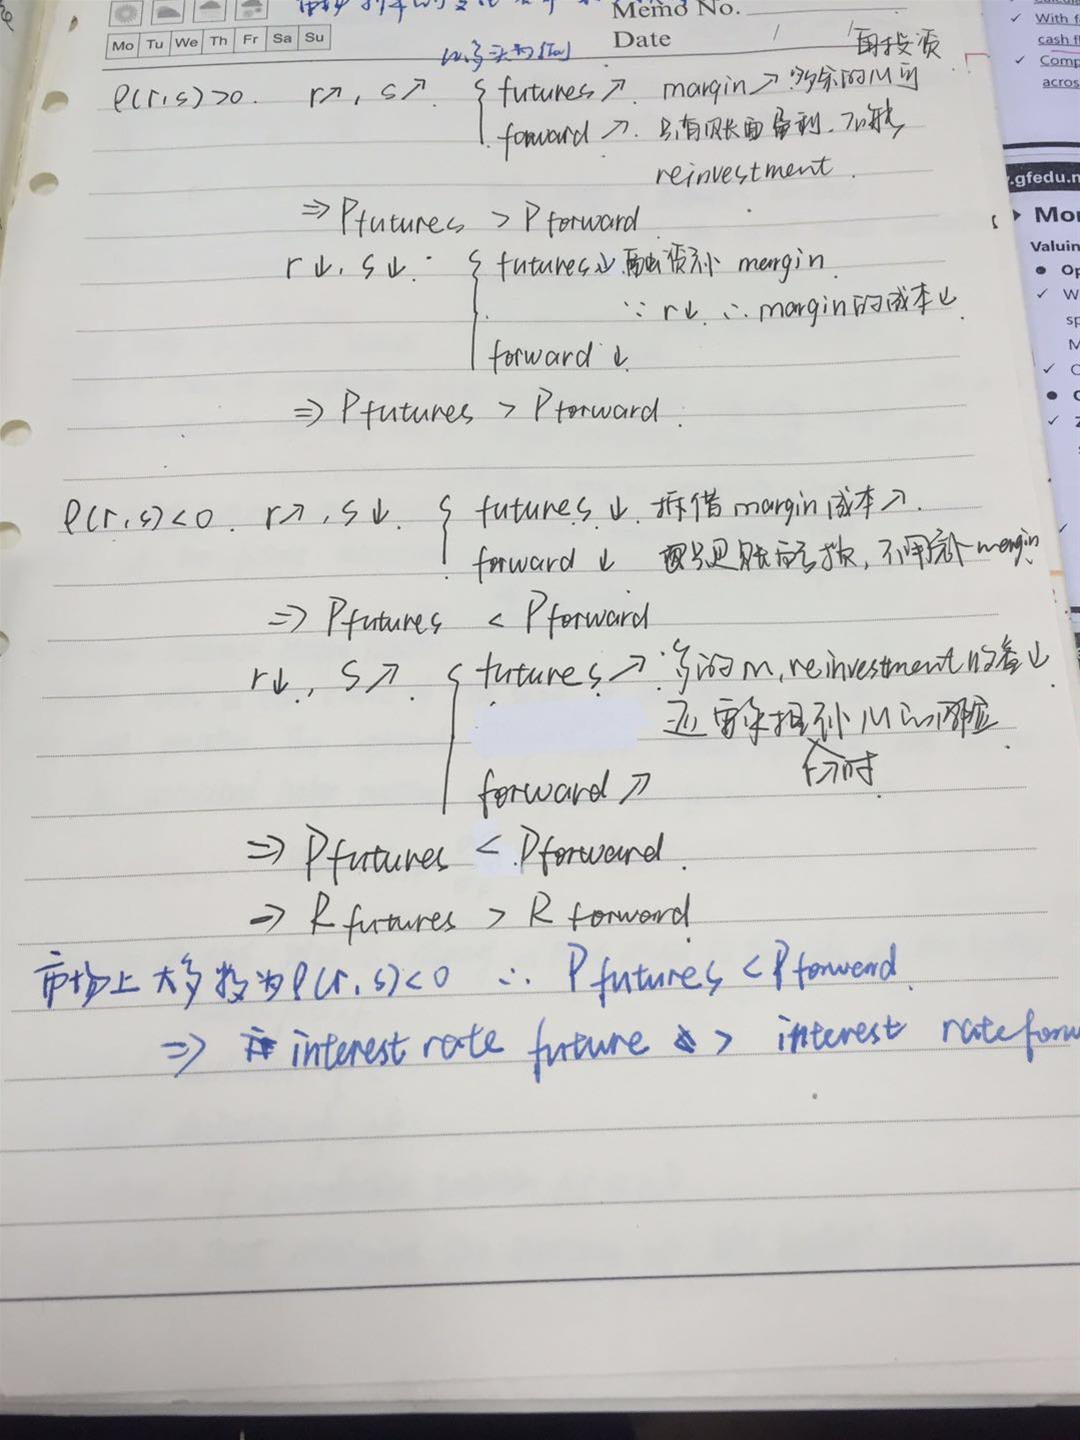 Memo No.
Mo Tu We Th Fr Sa Su
Date / /
以多头为例
再投资
ρ(r,s)>0. r↗, s↗. { futures↗. margin↗ 多余的M可
forward↗. 只有账面盈利.不能
reinvestment.
⇒ Pfutures > Pforward
r↓, s↓. { futures↓ 融资补 margin
∵ r↓ ∴ margin的成本↓
forward↓
⇒ Pfutures > Pforward.
ρ(r,s)<0. r↗, s↓. { futures↓. 拆借margin成本↗.
forward↓ 只是账面亏损, 不用补margin
⇒ Pfutures < Pforward
r↓, s↗. { futures↗ 多的m, reinvestment收益↓
还要承担补M的风险
forward↗
⇒ Pfutures < Pforward.
⇒ R futures > R forward
市场上大多数为ρ(r,s)<0 ∴ Pfutures < Pforward.
⇒ interest rate future > interest rate forw
With f
cash f
Comp
acros
.gfedu.n
Mor
Valuin
Op
W
sp
M
C